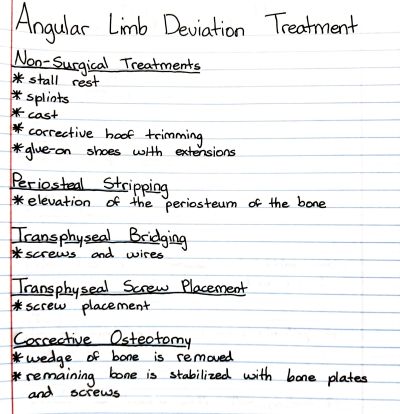 Angular Limb Deviation Treatment
Non-Surgical Treatments
* stall rest
* splints
* cast
* corrective hoof trimming
* glue-on shoes with extensions
Periosteal Stripping
* elevation of the periosteum of the bone
Transphyseal Bridging
* screws and wires
Transphyseal Screw Placement
* screw placement
Corrective Osteotomy
* wedge of bone is removed
* remaining bone is stabilized with bone plates
and screws